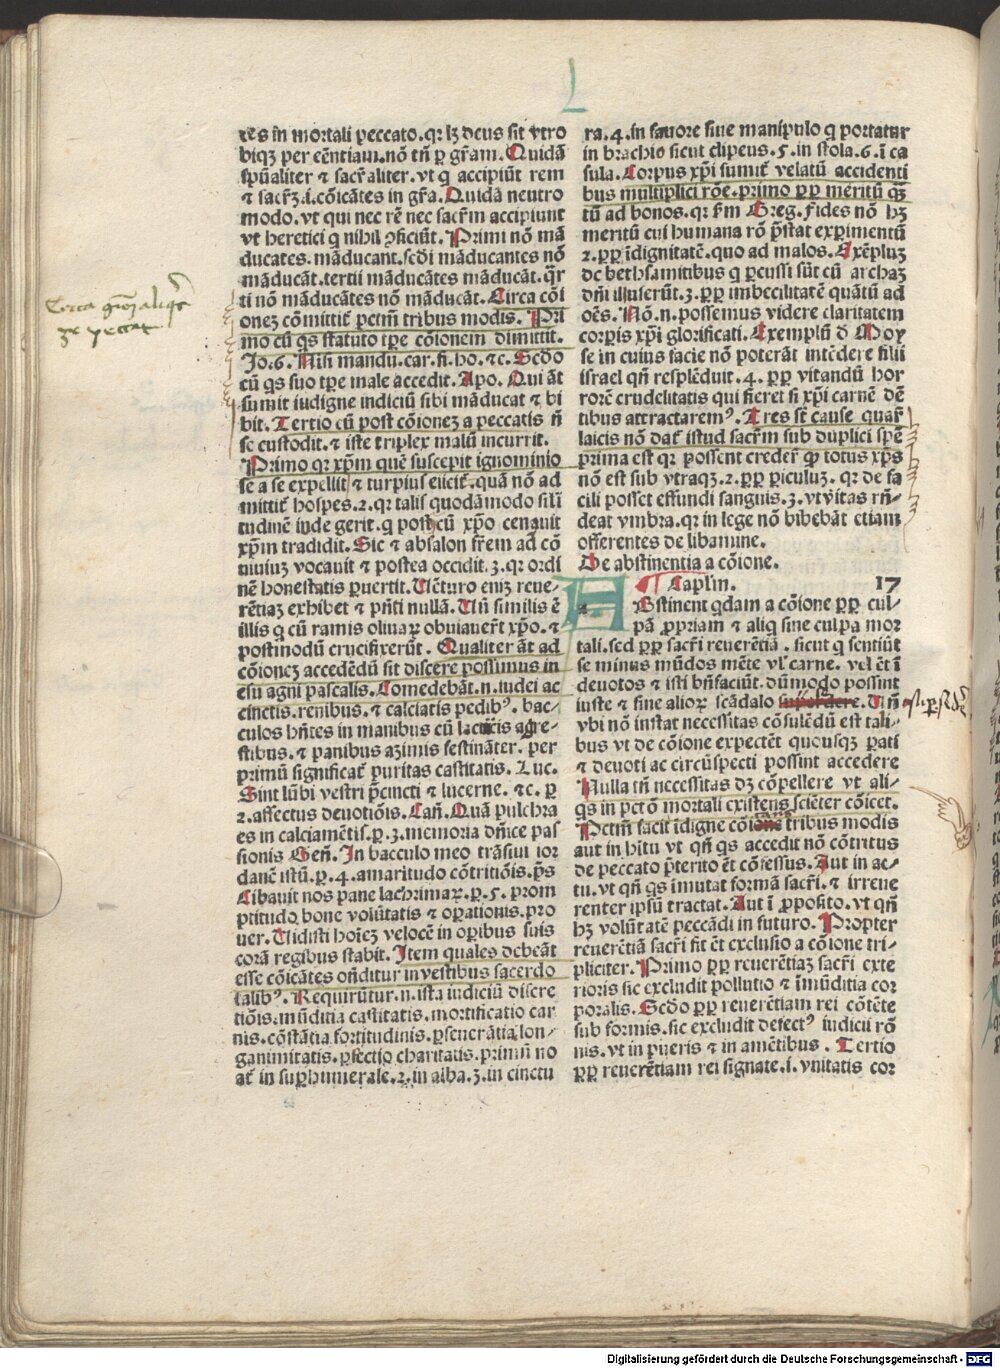 L
tes in mortali peccato. qꝛ lꝫ deus sit vtro
biqꝫ per eēntiam. nō tn̄ ꝑ gr̄am. Quidā
spūaliter ⁊ sacr̄aliter. vt q accipiūt rem
⁊ sacr̄ꝫ .i. cōicātes in gr̄a. Quidā neutro
modo. vt qui nec rē nec sacr̄m accipiunt
vt heretici q nihil ꝓficiūt. Primi nō mā
ducates. māducant. scd̄i māducantes nō
māducāt. tertii māducātes māducāt. q̄r
ti nō māducātes nō māducāt. Circa cōi
onez cōmittit̄ pctm̄ tribus modis. Pri
mo cū qs statuto tꝑe cōionem dimittit.
Jo. 6. Nisi mandu. car. fi. ho. ⁊c. Scd̄o
cū qs suo tꝑe male accedit. Apo. Qui āt
sumit indigne indiciū sibi māducat ⁊ bi
bit. Tertio cū post cōionez a peccatis n̄
se custodit. ⁊ iste triplex malū incurrit.
Primo qꝛ xp̄m quē suscepit ignominio
se a se expellit ⁊ turpius eiicit̄. quā nō ad
mittit̄ hospes. 2. qꝛ talis quodāmodo sili
tudinē iude gerit. q postcū xp̄o cenauit
xp̄m tradidit. Sic ⁊ absalon fr̄em ad cō
uiuiuꝫ vocauit ⁊ postea occidit. 3. qꝛ ordi
nē honestatis ꝑuertit. Uēturo eniꝫ reue-
rētiaꝫ exhibet ⁊ pn̄ti nullā. Un̄ similis ē
illis q cū ramis oliuaꝝ obuiauer̄t xp̄o. ⁊
postmodū crucifixerūt. Qualiter āt ad
cōionez accedēdū sit discere possumus in
esu agni pascalis. Comedebāt .n. iudei ac
cinctis. renibus. ⁊ calciatis pedibꝰ. bac-
culos hn̄tes in manibus cū lactucis agre-
stibus. ⁊ panibus azimis festināter. per
primū significat̄ puritas castitatis. Luc.
Sint lūbi vestri p̄cincti ⁊ lucerne. ⁊c. ꝑ
2. affectus deuotiōis. Cañ. Quā pulchra
es in calciamētis. ꝑ .3. memoria dn̄ice pas
sionis Geñ. In bacculo meo trāsiui ior
danē istū. ꝑ .4. amaritudo cōtritiōis. p̄s
Cibauit nos pane lachrimaꝝ. ꝑ .5. prom
ptitudo bone volūtatis ⁊ oꝑationis. pro
uer. Uidisti hoīeꝫ velocē in oꝑibus suis
corā regibus stabit. Item quales debeāt
esse cōicātes on̄ditur in vestibus sacerdo
talibꝰ. Requirūtur .n. ista iudiciū discre
tiōis. mūditia castitatis. mortificatio car
nis. cōstātia fortitudinis. ꝑseuerātia lon-
ganimitatis. ꝑfectio charitatis. primū no
at̄ in suꝑhumerale. 2. in alba. 3. in cinctu
ra. 4. in fauore siue manipulo q portatur
in brachio sicut clipeus. 5. in stola. 6. ī ca
sula. Corpus xp̄i sumit̄ velatū accidenti
bus multiplici rōe. primo ꝓꝑ meritū qꝫ
tū ad bonos. qꝛ s̄m Greg. fides nō hꝫ
meritū cui humana rō p̄stat exꝑimentū
2. ꝓꝑ īdignitatē. quo ad malos. Exēpluꝫ
de bethsamitibus q ꝑcussi sūt cū archaꝫ
dn̄i illuserūt. 3. ꝓꝑ imbecilitatē quātū ad
oēs. Nō .n. possemus videre claritatem
corꝑis xp̄i glorificati. Exemplū d Moy
se in cuius facie nō poterāt intēdere filii
israel qn̄ resplēduit. 4. ꝓꝑ vitandū hor
rorē crudelitatis qui fieret si xp̄i carnē dē
tibus attractaremꝰ. Tres st̄ cause quar̄
laicis nō dat̄ istud sacr̄m sub duplici spē
prima est qꝛ possent creder̄ ꝙ totus xp̄s
nō est sub vtraqꝫ. 2. ꝓꝑ ꝑiculuꝫ. qꝛ de fa
cili posset effundi sanguis. 3. vt vītas rn̄-
deat vmbra. qꝛ in lege nō bibebāt etiam
offerentes de libamine.
De abstinentia a cōione.
¶ Caplm̄. 17
ABstinent qdam a cōione ꝓꝑ cul-
pā ꝓpriam ⁊ aliq sine culpa mor
tali. sed ꝓꝑ sacr̄i reuerētiā. sicut q sentiūt
se minus mūdos mēte vl̄ carne. vel ēt ī
deuotos ⁊ isti bn̄ faciūt. dūmodo possint
iuste ⁊ sine alioꝝ scādalo. Un̄
vbi nō instat necessitas cōsulēdū est tali-
bus vt de cōione expectēt quousqꝫ pati
⁊ deuoti ac circūspecti possint accedere
Nulla tn̄ necessitas dꝫ cōpellere vt ali-
qs in pctō mortali existens sciēter cōicet.
Pctm̄ facit īdigne cōicāns tribus modis
aut in hītu vt qn̄ qs accedit nō cōtritus
de peccato p̄terito ēt cōfessus. Aut in ac-
tu. vt qn̄ qs imutat formā sacr̄i. ⁊ irreue
renter ipsū tractat. Aut ī ꝓposito. vt qn̄
hꝫ volūtatē peccādi in futuro. Propter
reuerētiā sacr̄i fit ēt exclusio a cōione tri-
pliciter. Primo ꝓꝑ reuerētiaꝫ sacr̄i exte
rioris sic excludit pollutio ⁊ īmūditia cor
poralis. Scd̄o ꝓꝑ reuerētiam rei cōtēte
sub formis. sic excludit defectꝰ iudicii rō
nis. vt in pueris ⁊ in amētibus. Tertio
ꝓꝑ reuerētiam rei signate .i. vnitatis cor
Digitalisierung gefördert durch die Deutsche Forschungsgemeinschaft - DFG